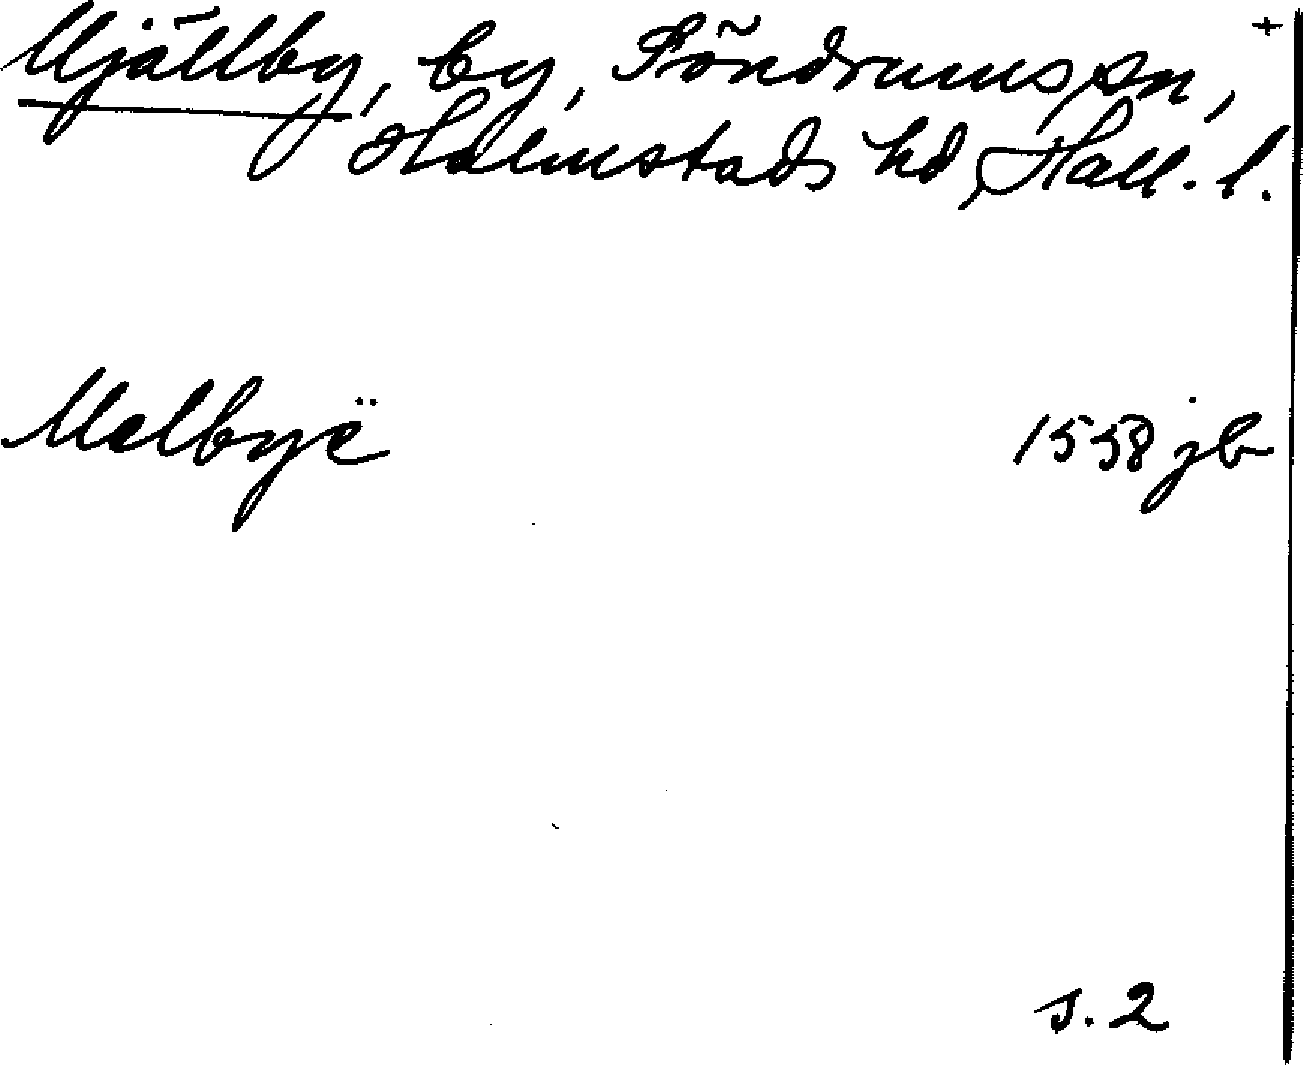 Mjällby, by, Söndrums sn, +
Halmstads hd, Hall. l.
Melbyë 1558 jb
s. 2